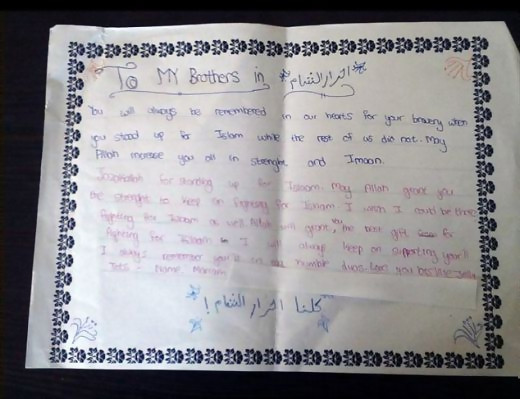 To MY Brothers in احرار الشام
You will always be remembered in our hearts for your bravery when
you stood up for Islam while the rest of us did not. May
Allah increase you all in strenght and Imaan.
for standing up for Islaam. May Allah grant you
the strenght to keep on fighting for Islaam I wish I could be there
fighting for Islaam as well Allah grant you the best gift for
fighting for Islaam I will always keep on supporting
I always remember in humble duas. Love you
Name: Mariam
كلنا احرار الشام!